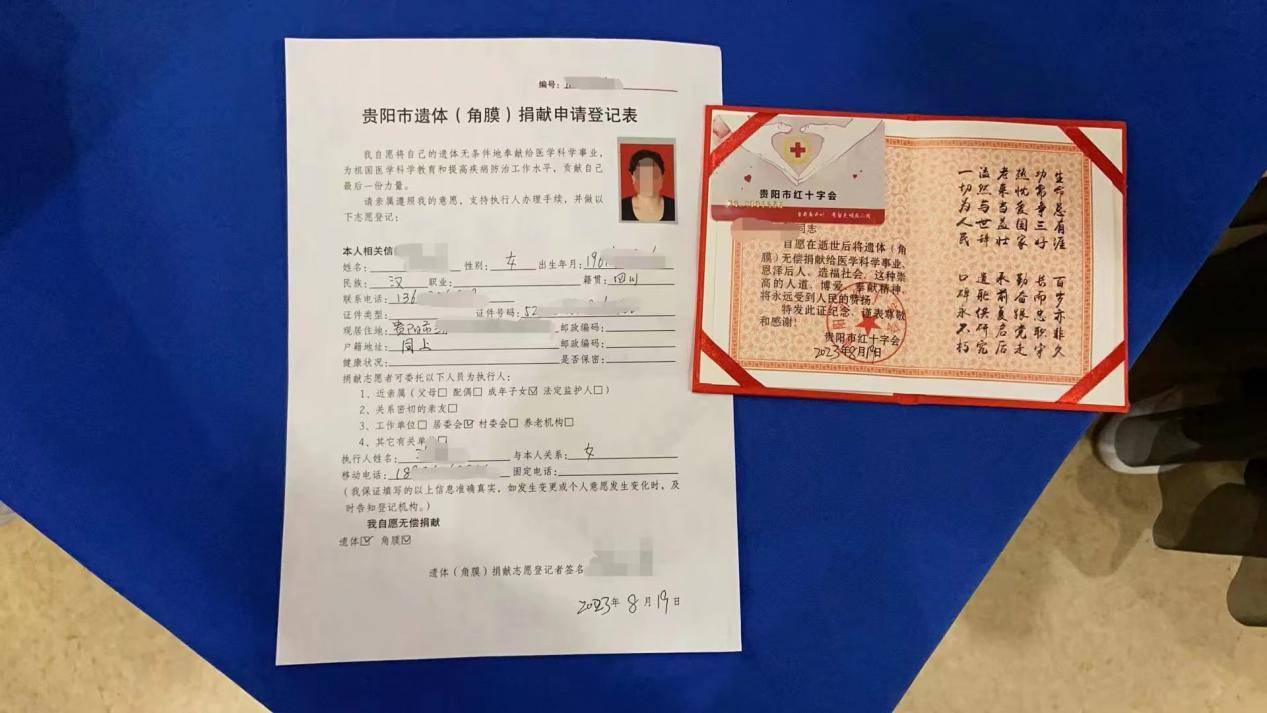 编号:
贵阳市遗体（角膜）捐献申请登记表
我自愿将自己的遗体无条件地奉献给医学科学事业，
为祖国医学科学教育和提高疾病防治工作水平，贡献自己
最后一份力量。
请亲属遵照我的意愿，支持执行人办理手续，并做以
下志愿登记：
本人相关信
姓名: 性别: 女 出生年月: 196
民族: 汉 职业: 籍贯: 四川
联系电话: 136
证件类型: 证件号码: 52
现居住地: 贵阳市 邮政编码:
户籍地址: 同上 邮政编码:
健康状况: 是否保密:
捐献志愿者可委托以下人员为执行人：
1、近亲属（父母□ 配偶□ 成年子女☑ 法定监护人□）
2、关系密切的亲友□
3、工作单位□ 居委会☑ 村委会□ 养老机构□
4、其它有关单 □
执行人姓名: 与本人关系: 女
移动电话: 18 固定电话:
（我保证填写的以上信息准确真实，如发生变更或个人意愿发生变化时，及
时告知登记机构。）
我自愿无偿捐献
遗体☑ 角膜☑
遗体（角膜）捐献志愿登记者签名
2023年 8月19日
贵阳市红十字会
同志
自愿在逝世后将遗体（角
膜）无偿捐献给医学科学事业，
恩泽后人、造福社会，这种崇
高的人道、博爱、奉献精神，
将永远受到人民的赞扬。
特发此证纪念，谨表尊敬
和感谢！
贵阳市红十字会
2023年8月19日
生命总有涯 百岁亦非久
功常争三好 长而忠职守
热忱爱国家 勤奋跟党走
老来当益壮 承前复启后
溘然与世辞 遗耻供研究
一切为人民 口碑永不朽